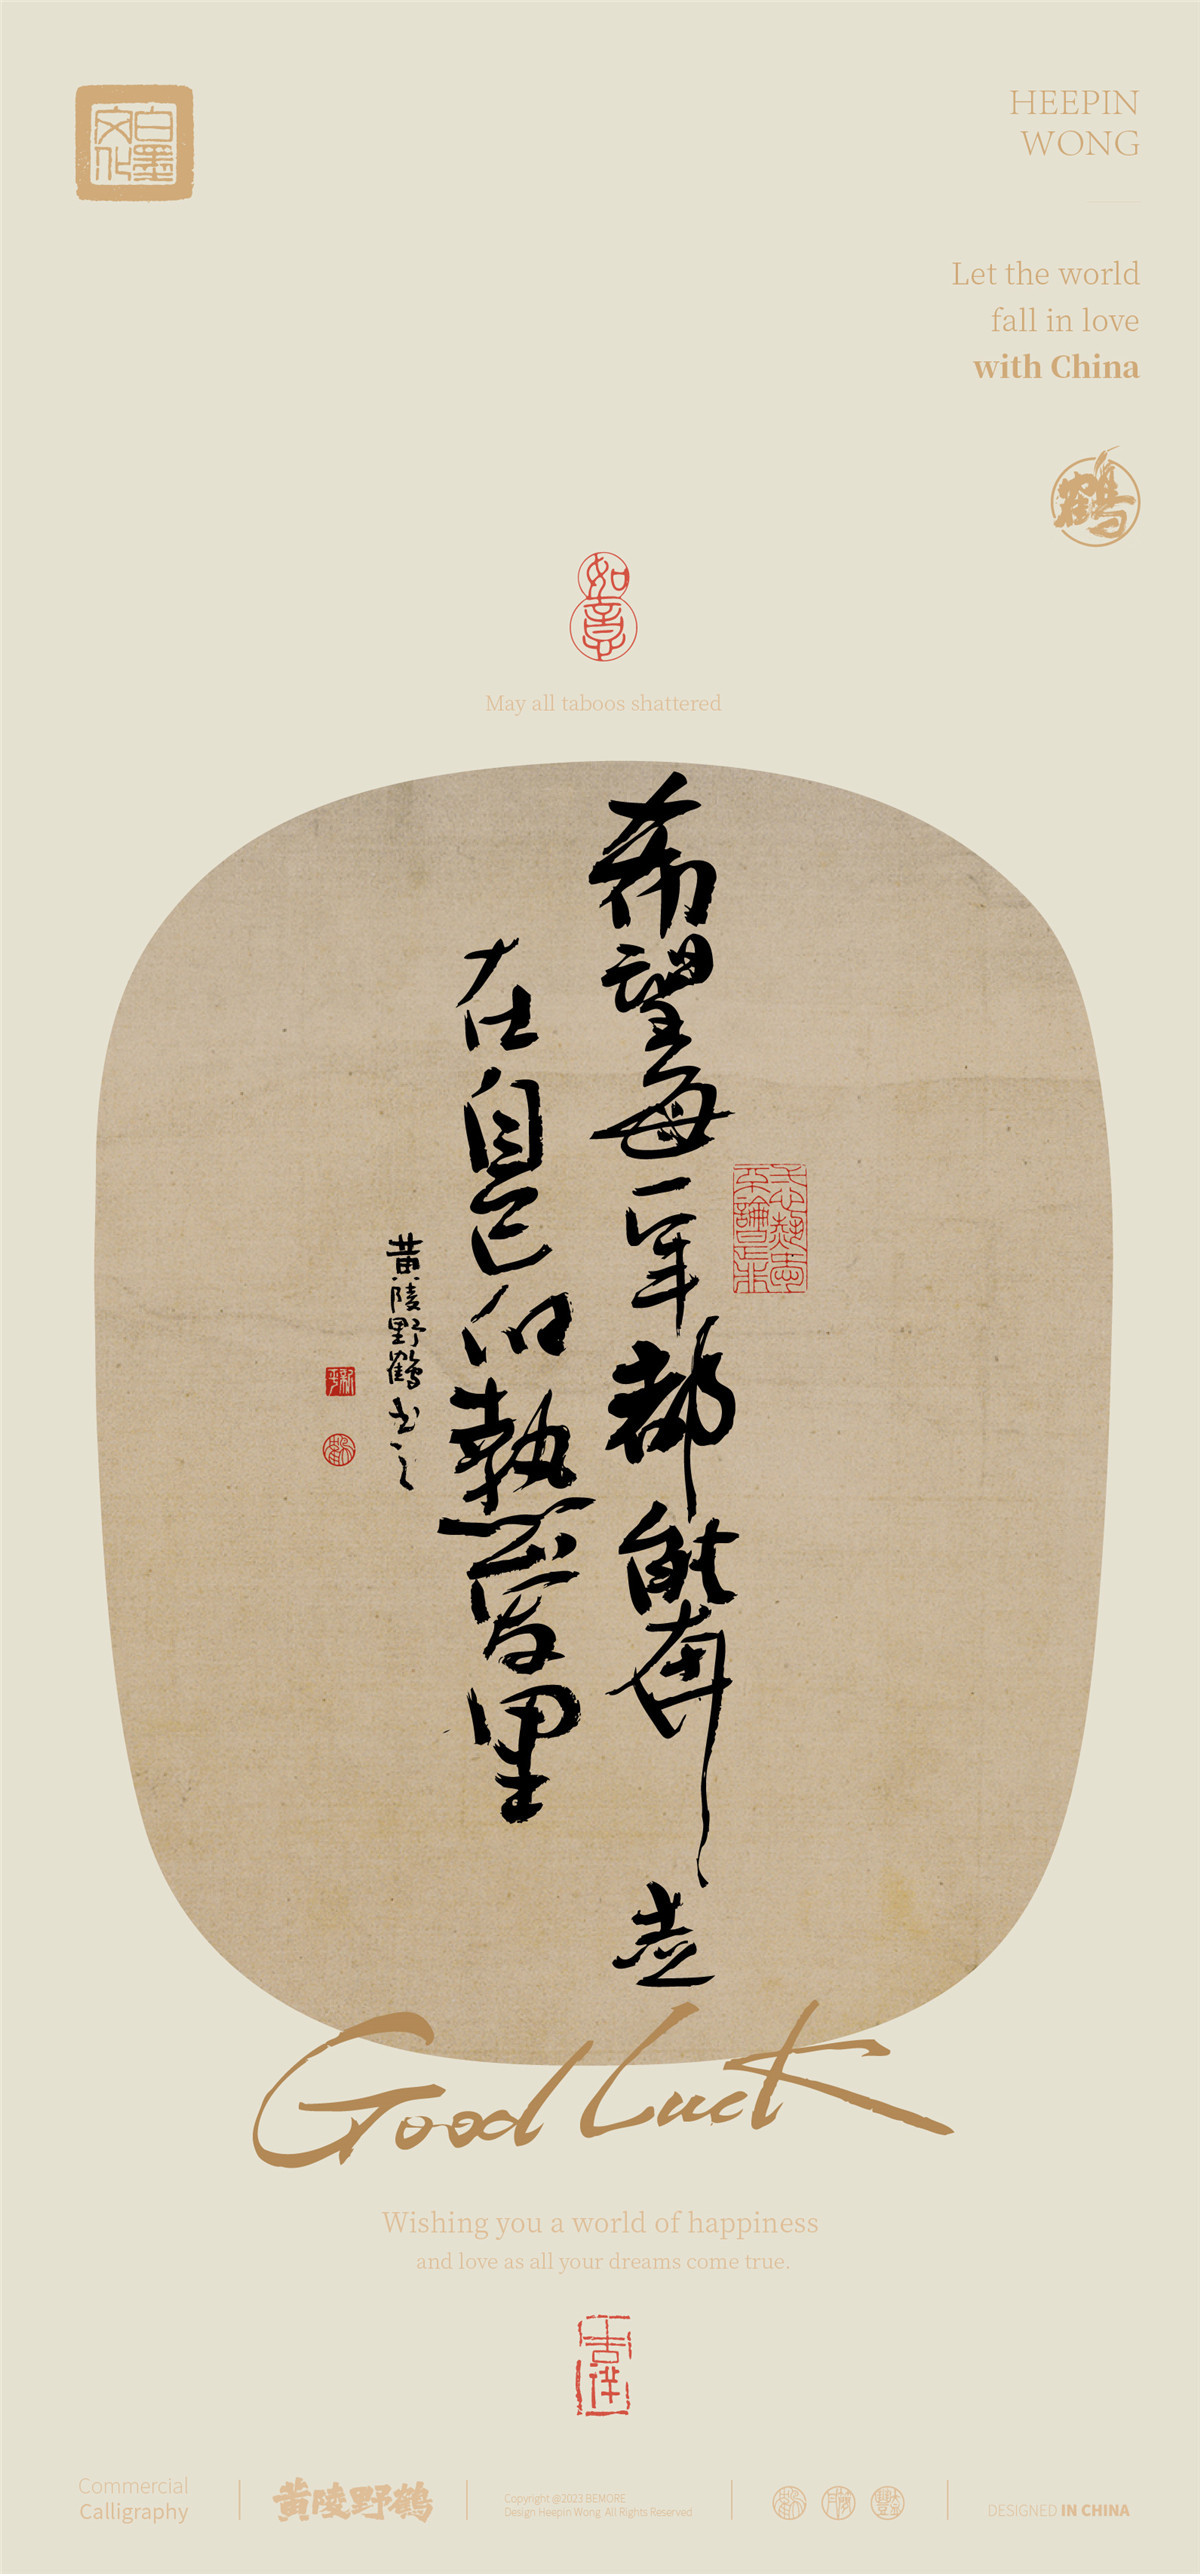 白墨文化
HEEPIN
WONG
Let the world
fall in love
with China
鶴
如意
May all taboos shattered
希望每一年都能奔走
在自己的熱愛里
黄陵野鶴书之
Good Luck
Wishing you a world of happiness
and love as all your dreams come true.
吉祥
Commercial
Calligraphy
黄陵野鶴
Copyright @2023 BEMORE
Design Heepin Wong. All Rights Reserved
DESIGNED IN CHINA